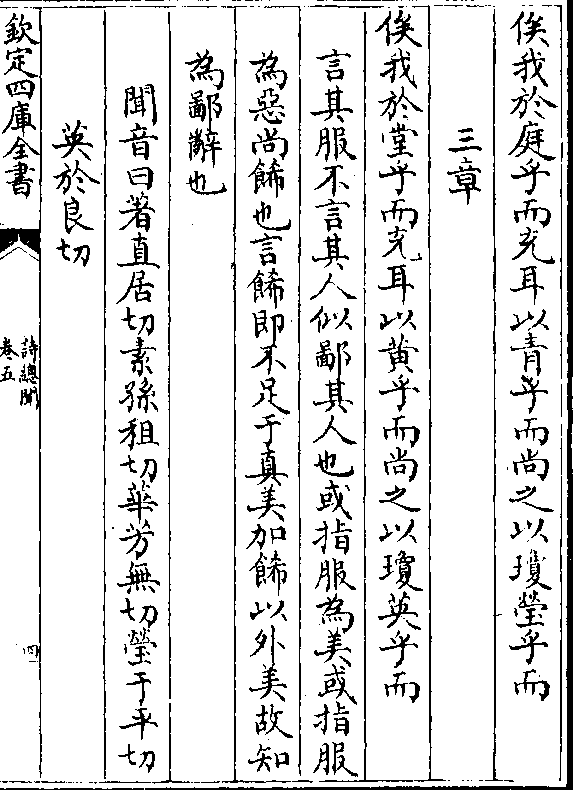 俟我於庭乎而充耳以青乎而尚之以瓊瑩乎而
三章
俟我於堂乎而充耳以黄乎而尚之以瓊英乎而
言其服不言其人似鄙其人也或指服為美或指服
為惡尚餙也言餙即不足于真美加餙以外美故知
為鄙辭也
聞音曰著直居切素孫租切華芳無切瑩于平切
英於良切
欽定四庫全書
詩總聞
卷五
四